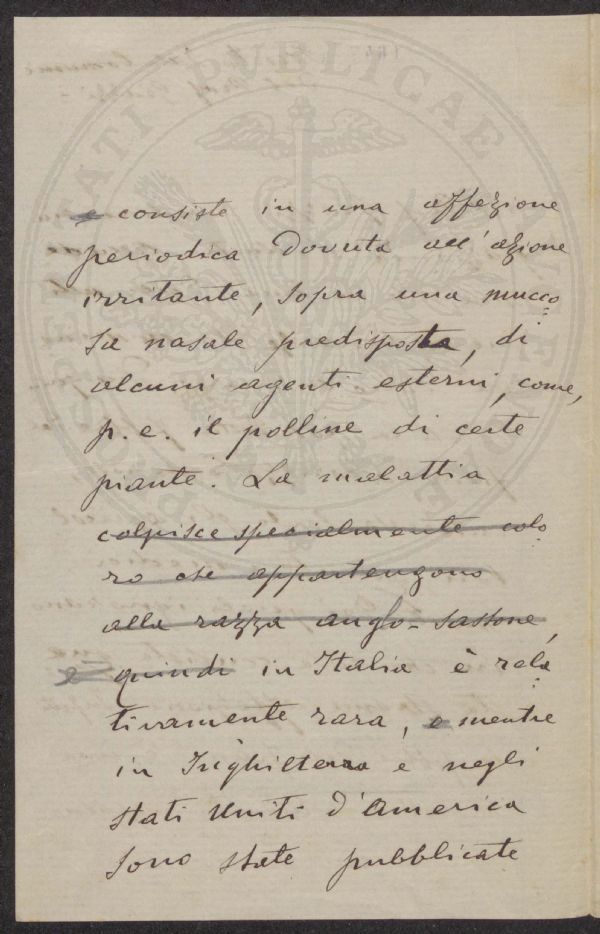 e consiste in una affezione
periodica dovuta all'azione
irritante, sopra una mucco
sa nasale predisposta, di
alcuni agenti esterni, come,
p. e. il polline di certe
piante. La malattia
colpisce specialmente colo
ro che appartengono
alla razza anglo-sassone,
e quindi in Italia è rela
tivamente rara, e mentre
in Inghilterra e negli
Stati Uniti d'America
sono state pubblicate